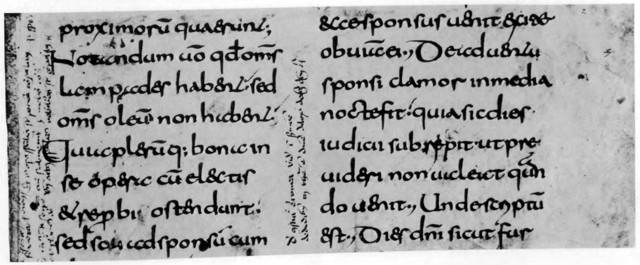 proximorū quaerunt;
Notandum uō qđ om̄s
lampades habent. sed
om̄s oleū non habent.
Quia plerūq; bona in
se opera cū electis
& repbi ostendunt.
sed soli ad sponsū cum
&cce sponsus uenit exite
obuiā ei., De aduentu
sponsi clamor in media
nocte fit. quia sic dies
iudicii subrepit ut pre
uideri non ualeat quan
do uenit., Unde scriptū
est., Dies dn̄i sicut fur